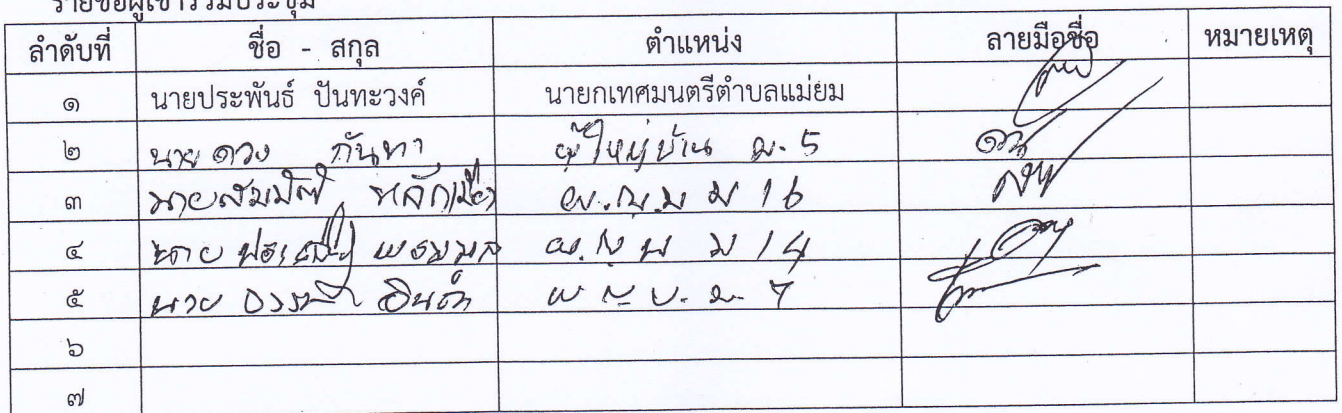 รายชื่อผู้เข้าร่วมประชุม
ลำดับที่ ชื่อ - สกุล ตำแหน่ง ลายมือชื่อ หมายเหตุ
๑ นายประพันธ์ ปันทะวงค์ นายกเทศมนตรีตำบลแม่ยม
๒ นาย ดวง กันทา ผู้ใหญ่บ้าน ม. 5
๓ นายสมมิตร หลักเมือง ผ.ญ.บ ม 16
๔ นาย พรมมล ผ.ญ บ ม 14
๕ นาย อินต๊ะ ผ ญ บ. ม. 7
๖
๗